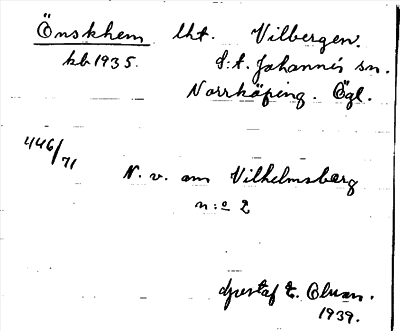 Önskhem lht. Vilbergen.
kb 1935. S:t. Johannis sn.
Norrköping. Ögl.
446/71
N. v. om Vilhelmsberg
n:o 2
Gustaf E.
1939.